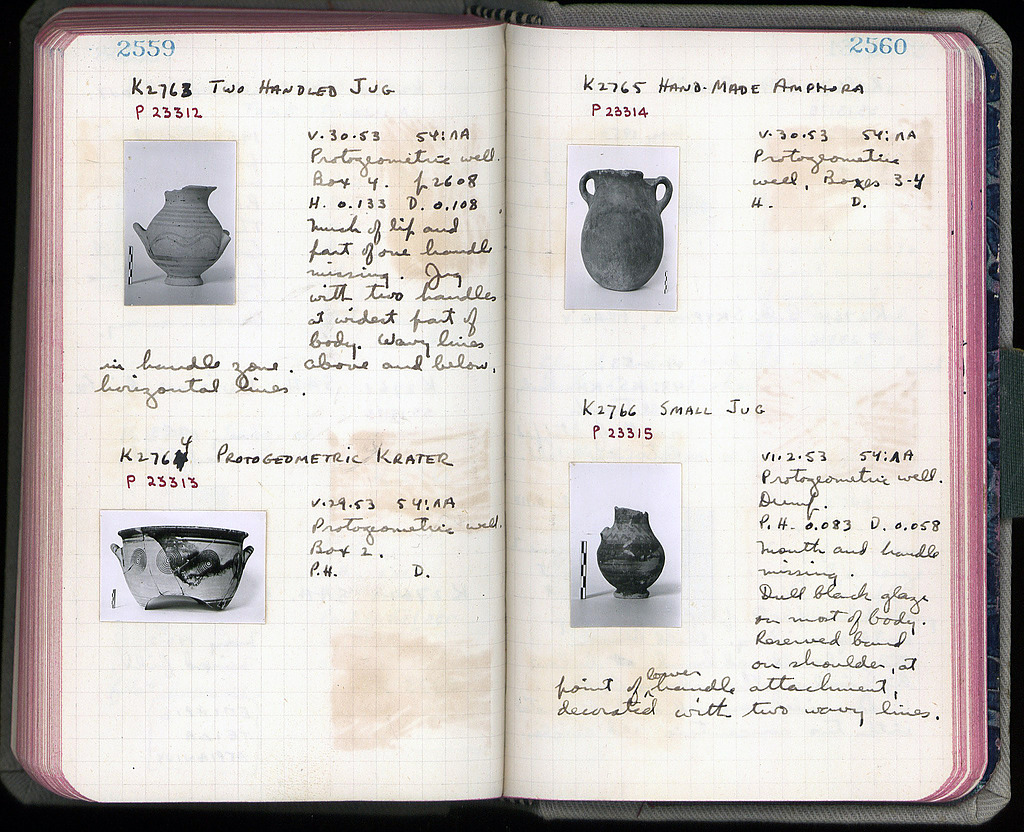 2559
K2763 TWO HANDLED JUG
P 23312
V.30.53 54:ΛA
Protogeometric well.
Box 4. p. 2608
H. 0.133 D. 0.108
Much of lip and
part of one handle
missing. Jug
with two handles
at widest part of
body. Wavy lines
in handle zone. above and below,
horizontal lines.
K2764 PROTOGEOMETRIC KRATER
P 23313
V.29.53 54:ΛA
Protogeometric well.
Box 2.
P.H. D.
2560
K2765 HAND-MADE AMPHORA
P 23314
V.30.53 54:ΛA
Protogeometric
well, Boxes 3-4
H. D.
K2766 SMALL JUG
P 23315
VI.2.53 54:ΛA
Protogeometric well.
Dump.
P.H. 0.083 D. 0.058
Mouth and handle
missing.
Dull black glaze
on most of body.
Reserved band
on shoulder, at
point of lower handle attachment,
decorated with two wavy lines.